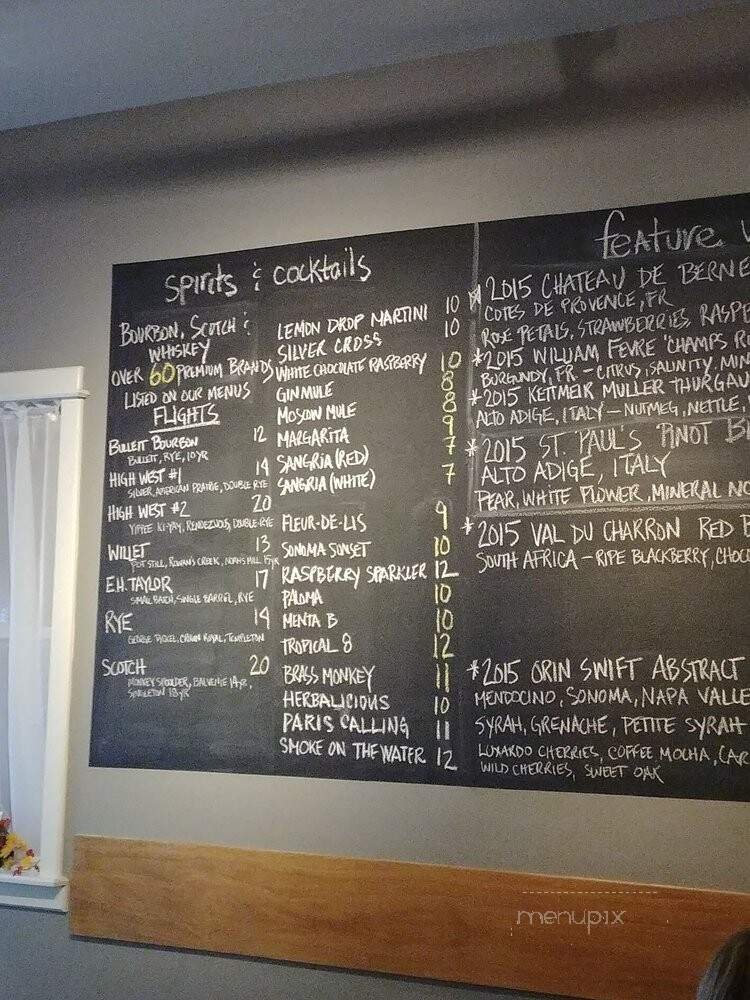 spirits & cocktails
BOURBON, SCOTCH &
WHISKEY
OVER 60 PREMIUM BRANDS
LISTED ON OUR MENUS
FLIGHTS
BULLEIT BOURBON 12
BULLEIT, RYE, 10YR
HIGH WEST #1 14
SILVER, AMERICAN PRAIRIE, DOUBLE RYE
HIGH WEST #2 20
YIPPEE KI-YAY, RENDEZVOUS, DOUBLE RYE
WILLET 13
POT STILL, ROWAN'S CREEK, NOAHS MILL 15YR
E.H. TAYLOR 17
SMALL BATCH, SINGLE BARREL, RYE
RYE 14
GEORGE DICKEL, CROWN ROYAL, TEMPLETON
SCOTCH 20
MONKEY SHOULDER, BALVENIE 14YR,
SINGLETON 18YR
LEMON DROP MARTINI 10
SILVER CROSS 10
WHITE CHOCOLATE RASPBERRY 10
GIN MULE 8
MOSCOW MULE 8
MARGARITA 9
SANGRIA (RED) 7
SANGRIA (WHITE) 7
FLEUR-DE-LIS 9
SONOMA SUNSET 10
RASPBERRY SPARKLER 12
PALOMA 10
MENTA B 10
TROPICAL 8 12
BRASS MONKEY 11
HERBALICIOUS 10
PARIS CALLING 11
SMOKE ON THE WATER 12
feature
2015 CHATEAU DE BERNE
COTES DE PROVENCE, FR
ROSE PETALS, STRAWBERRIES, RASPB
*2015 WILLIAM FEVRE 'CHAMPS R
BURGUNDY, FR. - CITRUS, SALINITY, MIN
*2015 KETTMEIR MULLER THURGAU
ALTO ADIGE, ITALY - NUTMEG, NETTLE,
*2015 ST. PAUL'S PINOT B
ALTO ADIGE, ITALY
PEAR, WHITE FLOWER, MINERAL NO
*2015 VAL DU CHARRON RED B
SOUTH AFRICA - RIPE BLACKBERRY, CHOC
*2015 ORIN SWIFT ABSTRACT
MENDOCINO, SONOMA, NAPA VALLE
SYRAH, GRENACHE, PETITE SYRAH
LUXARDO CHERRIES, COFFEE MOCHA, CAR
WILD CHERRIES, SWEET OAK
menupix